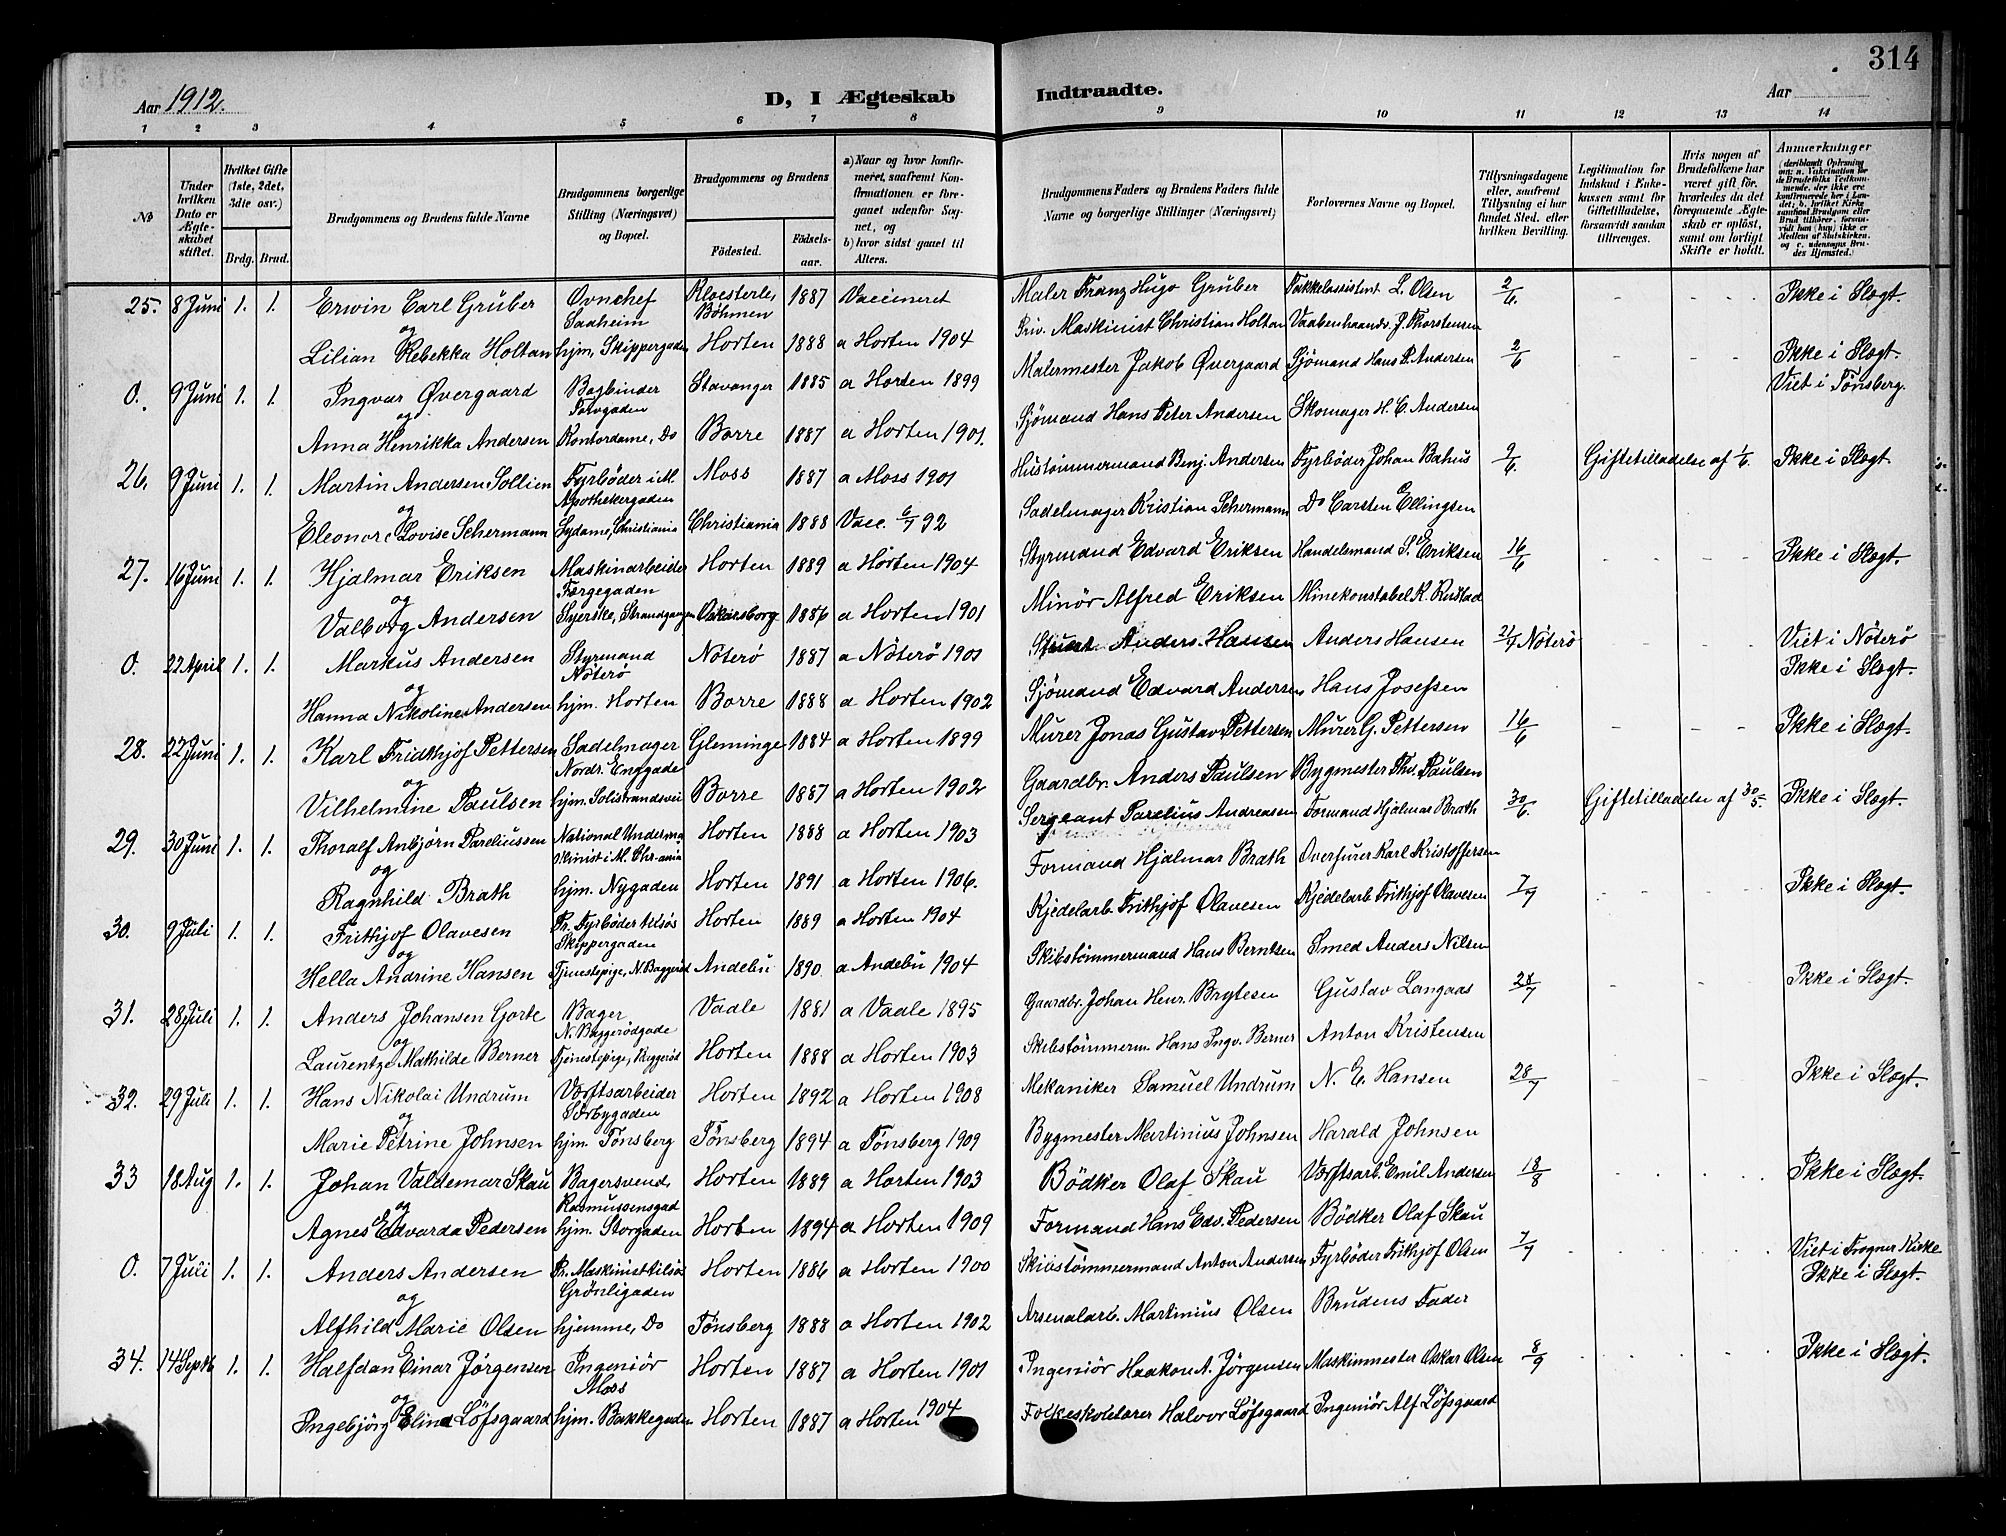 314
Aar 1912.
D, I Ægteskab Indtraadte.
Aar
1 2 3 4 5 6 7 8 9 10 11 12 13 14
No
Under hvilken Dato er Ægteskabet stiftet.
Hvilket Gifte (1ste, 2det, 3die osv.)
Brdg. Brud.
Brudgommens og Brudens fulde Navne
Brudgommens borgerlige Stilling (Næringsvei) og Bopæl.
Brudgommens og Brudens
Fødested. Fødselsaar.
a) Naar og hvor konfirmeret, saafremt Konfirmationen er foregaaet udenfor Sognet, og b) hvor sidst gaaet til Alters.
Brudgommens Faders og Brudens Faders fulde Navne og borgerlige Stillinger (Næringsvei)
Forlovernes Navne og Bopæl.
Tillysningsdagene eller, saafremt Tillysning ei har fundet Sted, efter hvilken Bevilling.
Legitimation for Indskud i Enkekassen samt for Giftetilladelse, forsaavidt saadan tiltrænges.
Hvis nogen af Brudefolkene har været gift før, hvorledes da det foregaaende Ægteskab er opløst, samt om lovligt Skifte er holdt.
Anmærkninger
25. 8 Juni 1. 1. Erwin Carl Gruber Ovnchef Saaheim Kloesterle, Böhmen 1887 Vaccineret Maler Franz Hugo Gruber Takkelassistent L. Olsen 2/6. Ikke i Slægt.
og
Lilian Rebekka Holtan hjm, Skippergaden Horten 1888 a Horten 1904 Priv. Maskinist Christian Holtan Vaabenhaandv. J. Thorstensen
0. 9 Juni 1. 1. Ingvar Øvergaard Bogbinder Torvgaden Stavanger 1885 a Horten 1899 Malermester Jakob Øvergaard Sjømand Hans P. Andersen 2/6 Ikke i Slægt. Viet i Tønsberg.
og
Anna Henrikka Andersen Kontordame, Do Borre 1887 a Horten 1901. Sjømand Hans Peter Andersen Skomager H. C. Andersen
26. 9 Juni 1. 1. Martin Andersen Sollien Fyrbøder i M. Apothekergaden Moss 1887 a Moss 1901 Hustømmermand Benj. Andersen Fyrbøder Johan Bahus 9/6. Giftetilladelse af 1/6. Ikke i Slægt
og
Eleonore Lovise Schermann Sydame, Christiania Christiania 1888 Vacc. 6/7 92 Sadelmager Kristian Schermann Do Carsten Ellingsen
27. 16 Juni 1. 1. Hjalmar Eriksen Maskinarbeider Færgegaden Horten 1889 a Horten 1904 Styrmand Edvard Eriksen Handelsmand S. Eriksen 16/6 Ikke i Slægt.
og
Valborg Andersen Syerske, Strandgangen Oskarsborg 1886 a Horten 1901 Minør Alfred Eriksen Minekonstabel K. Rustad
0. 22 April 1. 1. Markus Andersen Styrmand Nøterø Nøterø 1887 a Nøterø 1901 Anders Hansen Anders Hansen 21/4 Nøterø Viet i Nøterø Ikke i Slægt.
og
Hanna Nikoline Andersen hjm. Horten Borre 1888 a Horten 1902 Sjømand Edvard Andersen Hans Josefsen
28. 22 Juni 1. 1. Karl Fridthjof Pettersen Sadelmager Nordr. Enggade Gleminge 1884 a Horten 1899 Murer Jonas Gustav Pettersen Murer G. Pettersen 16/6 Ikke i Slægt.
og
Vilhelmine Paulsen hjm. Solistrandsvei Borre 1887 a Horten 1902 Gaardbr. Anders Paulsen Bygmester Thv. Paulsen
29. 30 Juni 1. 1. Thoralf Anbjørn Pareliussen National Undermaskinist i M. Chr-ania Horten 1888 a Horten 1903 Sergeant Parelius Andreasen Formand Hjalmar Brath 30/6. Giftetilladelse af 30/5. Ikke i Slægt.
og
Ragnhild Brath hjm. Nygaden Horten 1891 a Horten 1906. Formand Hjalmar Brath Overfurer Karl Kristoffersen
30. 9 Juli 1. 1. Frithjof Olavesen Pr. Fyrbøder tilsøs Skippergaden Horten 1889 a Horten 1904 Kjedelarb. Frithjof Olavesen Kjedelarb Frithjof Olavesen 7/7 Ikke i Slægt.
og
Hella Andrine Hansen Tjenestepige, N. Baggerød Andebu 1890. a Andebu 1904 Skibstømmermand Hans Berntsen Smed Anders Nilsen
31. 28 Juli 1. 1. Anders Johansen Gorte Bager N. Baggerødgade Vaale 1881 a Vaale 1895 Gaardbr. Johan Henr. Brytesen Gustav Langaas 28/7 Ikke i Slægt.
og
Laurentze Mathilde Berner Tjenestepige, Baggerød Horten 1888 a Horten 1903 Skibstømmerm. Hans Ingv. Berner Anton Kristensen
32. 29 Juli 1. 1. Hans Nikolai Undrum Værftsarbeider Sørbygaden Horten 1892 a Horten 1908 Mekaniker Samuel Undrum N. E. Hansen 28/7 Ikke i Slægt.
og
Marie Petrine Johnsen hjm. Tønsberg Tønsberg 1894 a Tønsberg 1909 Bygmester Martinius Johnsen Harald Johnsen
33 18 Aug 1. 1. Johan Valdemar Skau Bagersvend, Rasmussensgad Horten 1889 a Horten 1903 Bødker Olaf Skau Værftsarb. Emil Andersen 18/8 Ikke i Slægt.
og
Agnes Edvarda Pedersen hjm. Storgaden Horten 1894 a Horten 1909 Formand Hans Edv. Pedersen Bødker Olaf Skau
0. 7 Juli 1. 1. Anders Andersen Pr. Maskinist tilsøs Grønligaden Horten 1886 a Horten 1900 Skibstømmermand Anton Andersen Fyrbøder Frithjof Olsen 7/7 Viet i Frogner Kirke Ikke i Slægt.
og
Alfhild Marie Olsen hjemme, Do Tønsberg 1888 a Horten 1902 Arsenalarb. Martinius Olsen Brudens Fader
34. 14 Septb 1. 1. Halfdan Einar Jørgensen Ingeniør Moss Horten 1887 a Horten 1901 Ingeniør Haakon A. Jørgensen Maskinmester Oskar Olsen 8/9 Ikke i Slægt.
og
Ingebjørg Elina Løfsgaard hjm. Bakkegaden Horten 1887 a Horten 1904 Folkeskolelærer Halvor Løfsgaard Ingeniør Alf Løfsgaard